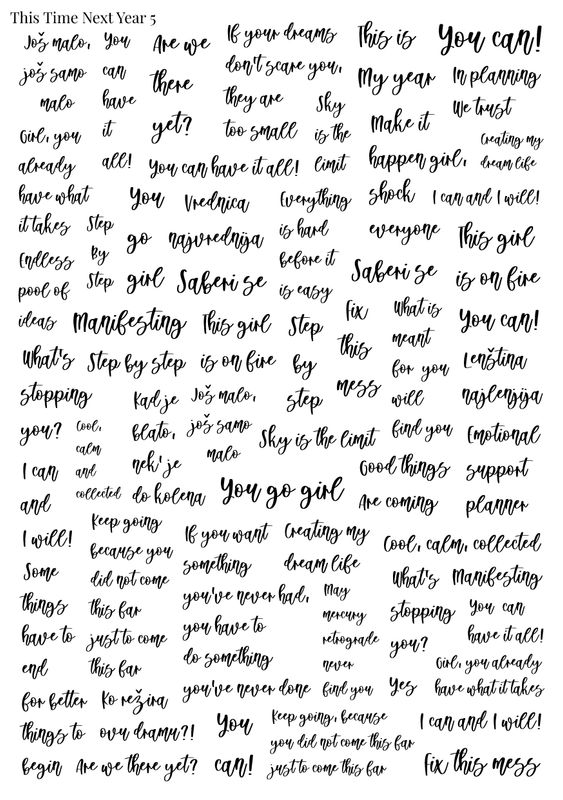 This Time Next Year 5
Još malo,
još samo
malo
You
can
have
it
all!
Are we
there
yet?
If your dreams
don't scare you,
they are
too small
This is
My year
Make it
happen girl,
shock
everyone
You can!
In planning
We trust
Sky
is the
limit
Creating my
dream life
Girl, you
already
have what
it takes
You can have it all!
You
go
girl
Vrednica
najvrednija
Everything
is hard
before it
is easy
I can and I will!
Step
By
Step
This girl
is on fire
Endless
pool of
ideas
Saberi se
Saberi se
Manifesting
This girl
is on fire
Step
by
step
Fix
this
mess
What is
meant
for you
will
find you
You can!
What's
stopping
you?
Step by step
Lenština
najlenjija
Kad je
blato,
nek' je
do kolena
Još malo,
još samo
malo
Cool,
calm
and
collected
Sky is the limit
Emotional
support
planner
I can
and
I will!
You go girl
Good things
Are coming
Keep going
because you
did not come
this far
just to come
this far
If you want
something
you've never had,
you have to
do something
you've never done
Creating my
dream life
Cool, calm, collected
Some
things
have to
end
for better
things to
begin
What's
stopping
you?
Manifesting
May
mercury
retrograde
never
find you
You can
have it all!
Girl, you already
have what it takes
Yes
Ko režira
ovu dramu?!
You
can!
Keep going, because
you did not come this far
just to come this far
I can and I will!
Are we there yet?
Fix this mess